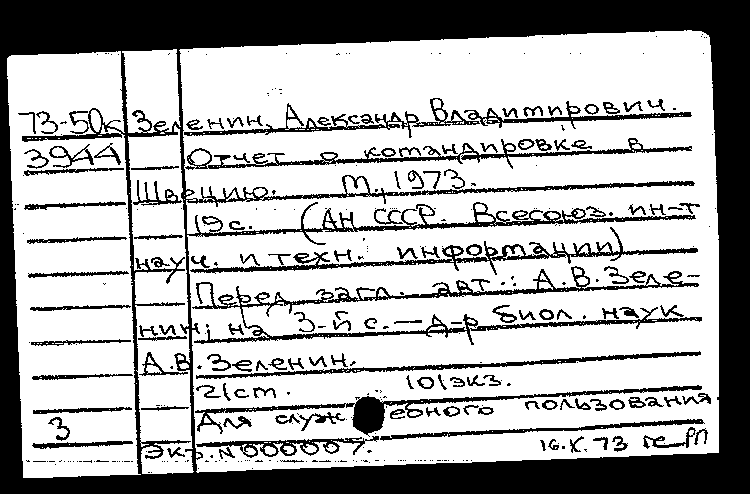 73-50к Зеленин, Александр Владимирович.
3944 Отчет о командировке в
Швецию. М., 1973.
19 с. (АН СССР. Всесоюз. ин-т
науч. и техн. информации)
Перед загл. авт.: А.В. Зеле-
нин; на 3-й с. — д-р биол. наук
А.В. Зеленин.
2/ст. 101экз.
3 Для служебного пользования.
Экз. N 000007. 16.X.73